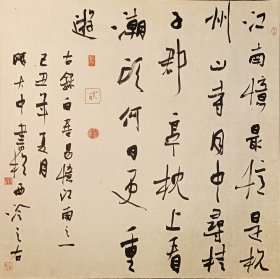 江南憶最憶是杭
州山寺月中尋桂
子郡亭枕上看
潮頭何日更重
遊
古錄白居易憶江南之一
己丑年夏月
大中書於西泠之右